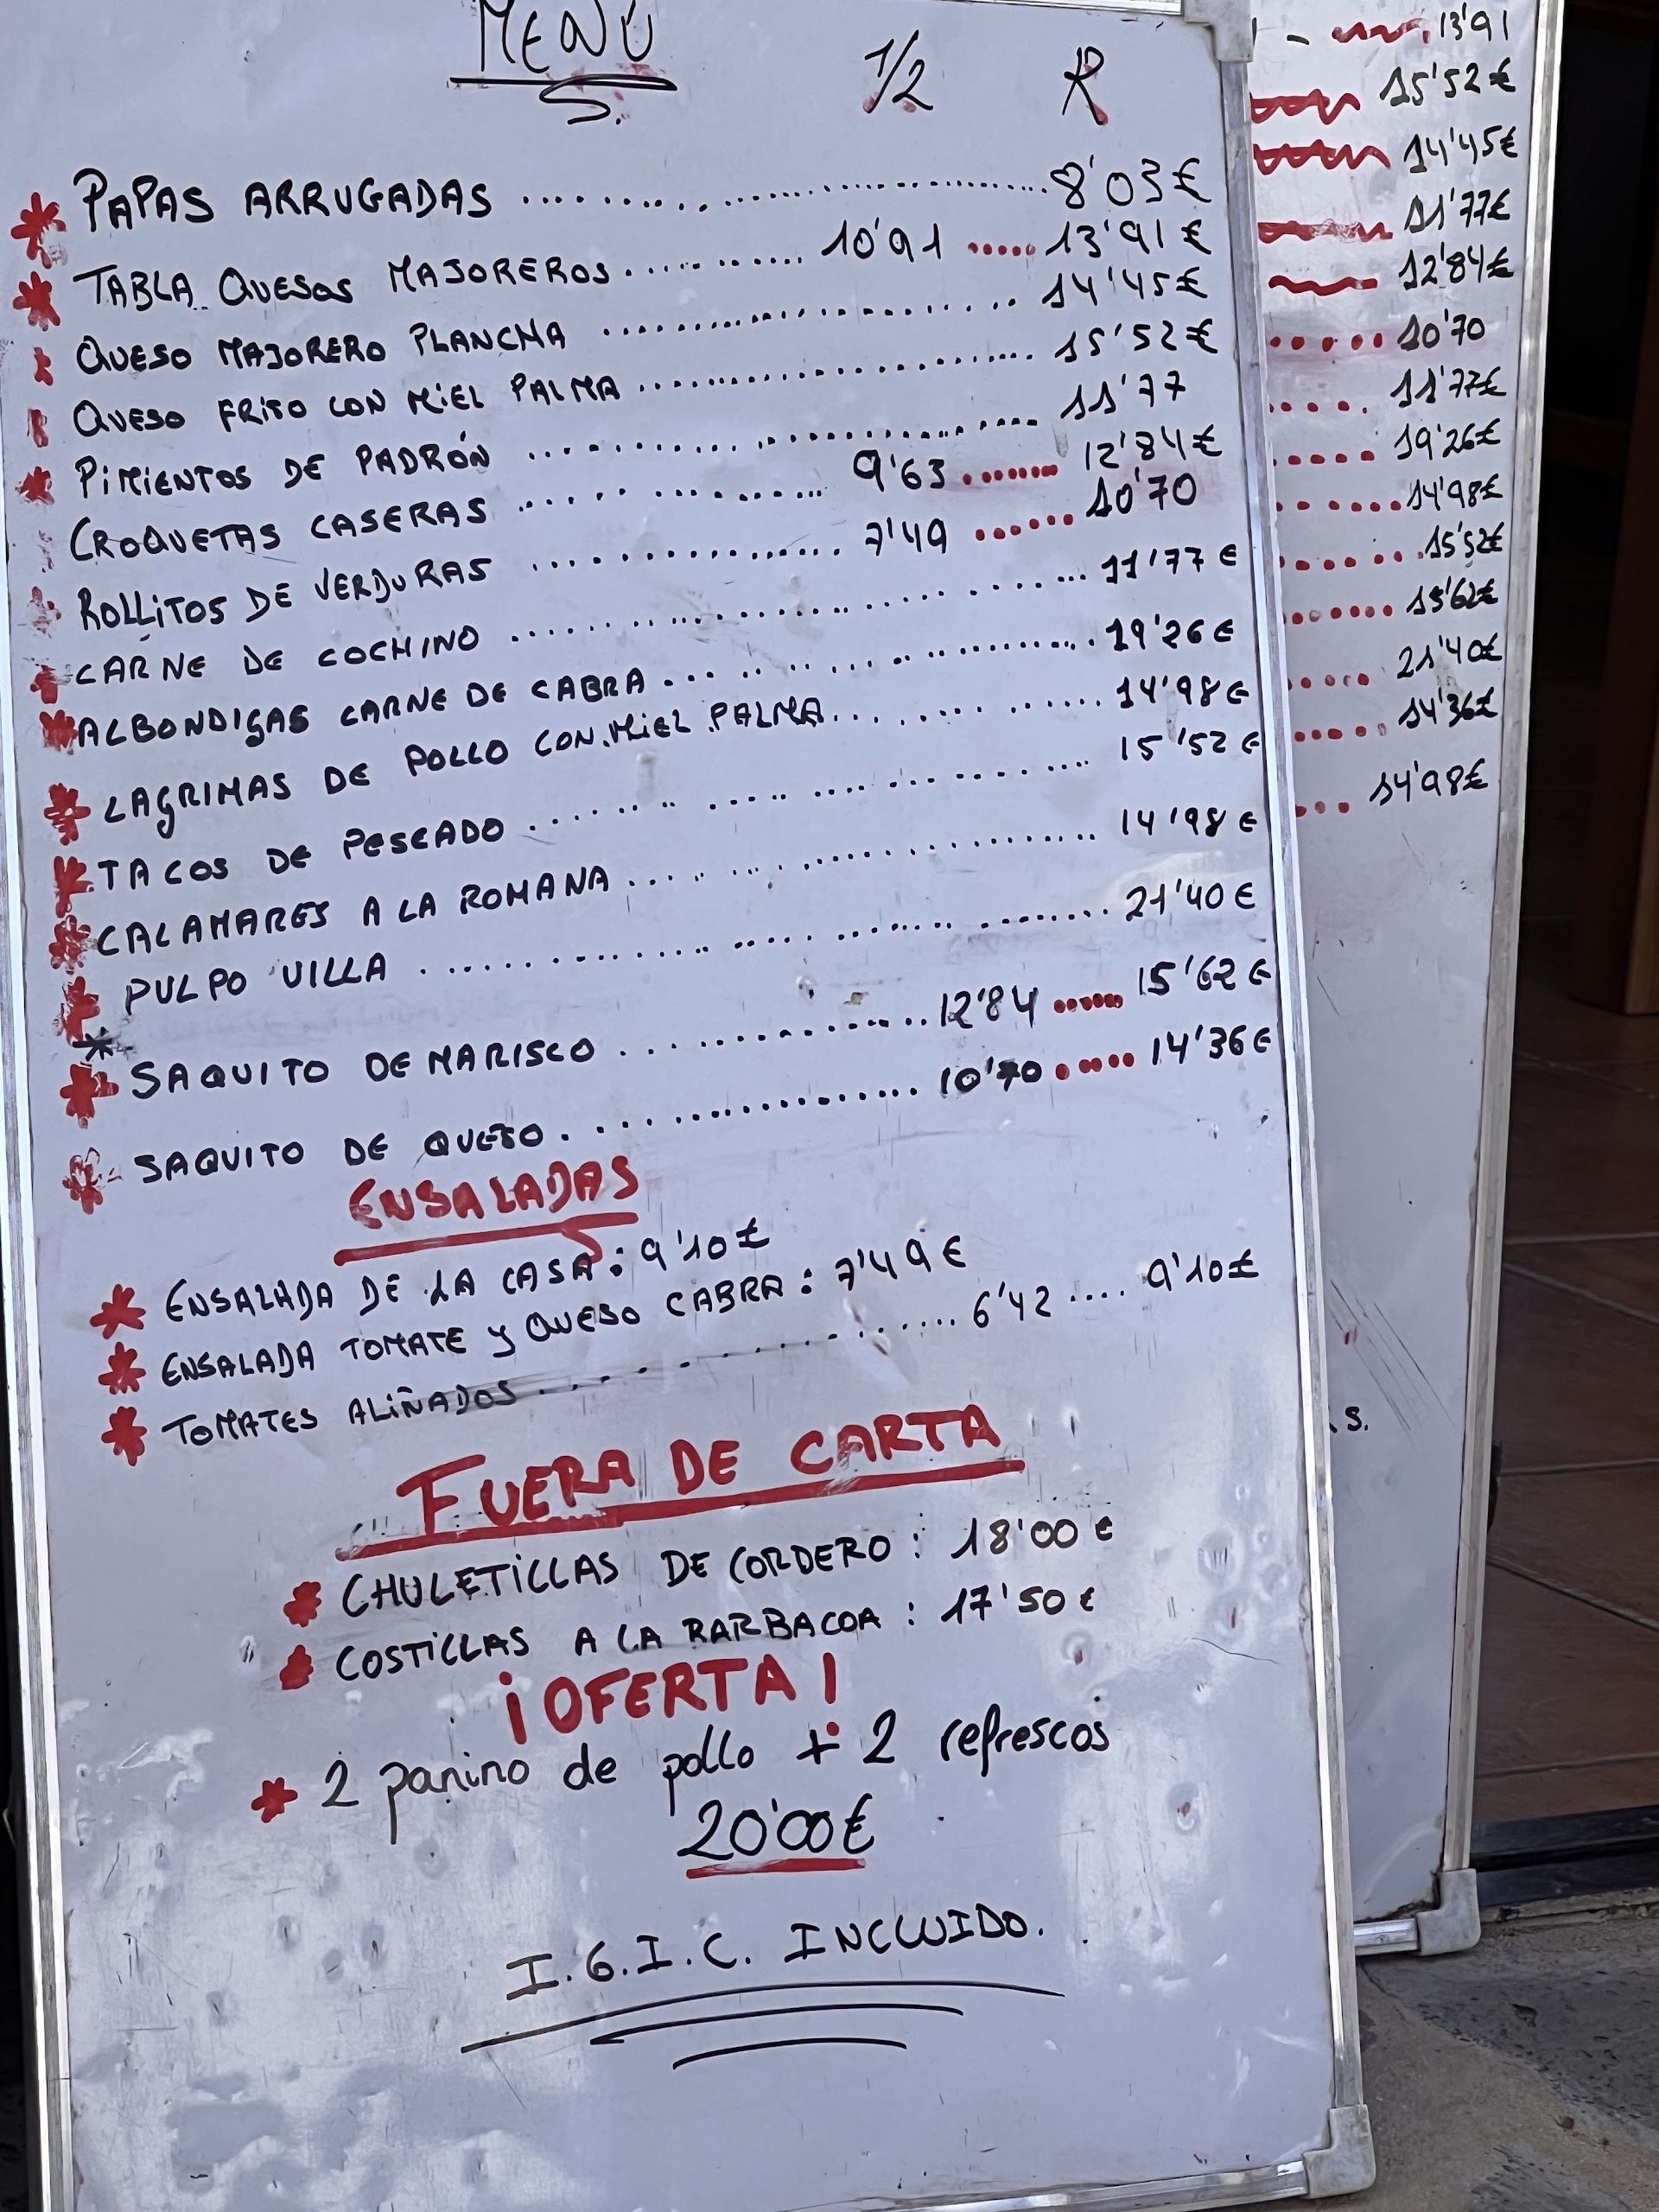 MENÚ
S. 1/2 R
PAPAS ARRUGADAS .......... 8'03€
TABLA QUESOS MAJOREROS .......... 10'91 ..... 13'91€
QUESO MAJORERO PLANCHA .......... 14'45€
QUESO FRITO CON MIEL PALMA .......... 15'52€
PIMIENTOS DE PADRÓN .......... 11'77
CROQUETAS CASERAS .......... 9'63 ....... 12'84€
ROLLITOS DE VERDURAS .......... 7'49 ...... 10'70
CARNE DE COCHINO .......... 11'77€
ALBONDIGAS CARNE DE CABRA .......... 19'26€
LAGRIMAS DE POLLO CON MIEL PALMA .......... 14'98€
TACOS DE PESCADO .......... 15'52€
CALAMARES A LA ROMANA .......... 14'98€
PULPO VILLA .......... 21'40€
SAQUITO DE MARISCO .......... 12'84 ...... 15'62€
SAQUITO DE QUESO .......... 10'70 ..... 14'36€
ENSALADAS
ENSALADA DE LA CASA: 9'10€
ENSALADA TOMATE Y QUESO CABRA: 7'49€
TOMATES ALIÑADOS .......... 6'42 .... 9'10€
FUERA DE CARTA
CHULETILLAS DE CORDERO: 18'00€
COSTILLAS A LA BARBACOA: 17'50€
¡OFERTA!
2 panino de pollo + 2 refrescos
20'00€
I.G.I.C. INCLUIDO.
13'91
15'52€
14'45€
11'77€
12'84€
10'70
11'77€
19'26€
14'98€
15'52€
15'62€
21'40€
14'36€
14'98€
S.